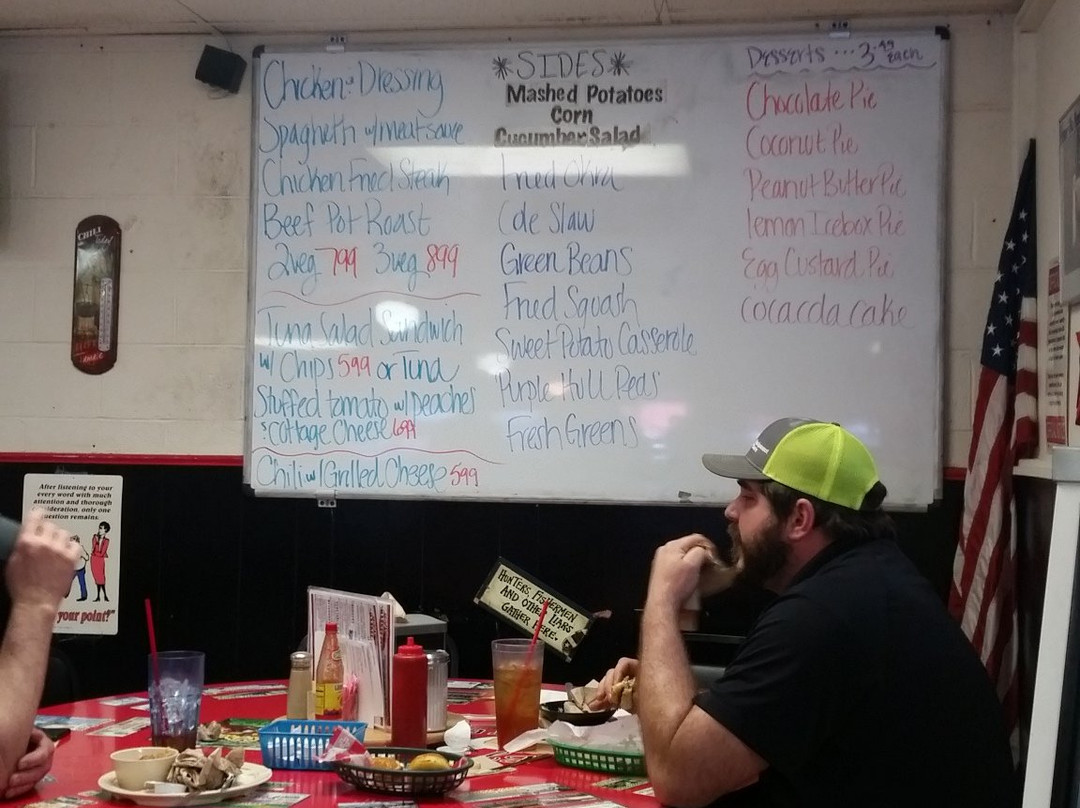 Chicken & Dressing
Spaghetti w/meat sauce
Chicken Fried Steak
Beef Pot Roast
2veg 799 3veg 899
Tuna Salad Sandwich
w/ Chips 599 or Tuna
Stuffed tomato w/ Peaches
& Cottage Cheese 699
Chili w/ Grilled Cheese 599
*SIDES*
Mashed Potatoes
Corn
Cucumber Salad
Fried Okra
Cole Slaw
Green Beans
Fried Squash
Sweet Potato Casserole
Purple Hull Peas
Fresh Greens
Desserts ... 3.49 each
Chocolate Pie
Coconut Pie
Peanut Butter Pie
lemon Icebox Pie
Egg Custard Pie
Cocacola Cake
CHILI
After listening to your
every word with much
attention and thorough
only one
question remains.
your point?"
HUNTERS, FISHERMEN
AND OTHER LIARS
GATHER HERE.